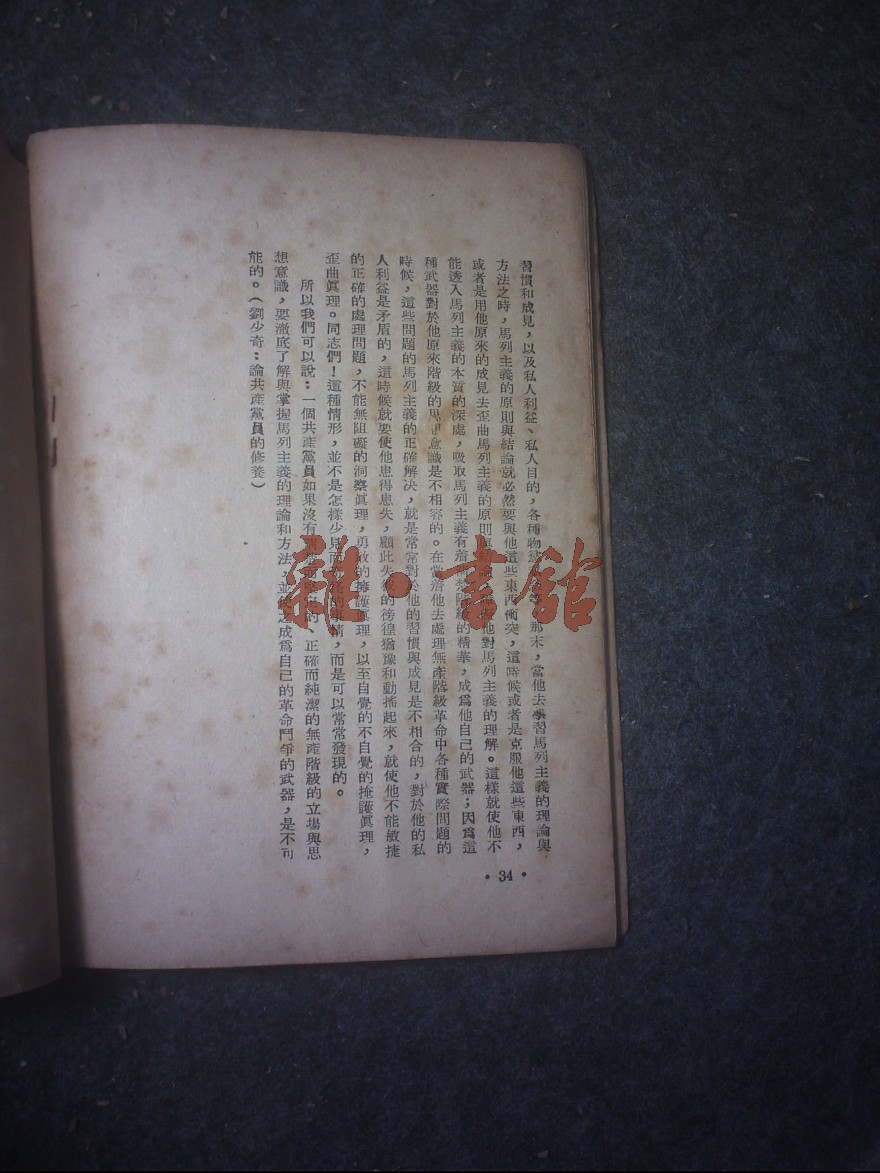 習慣和成見，以及私人利益、私人目的，各種物慾等，那末，當他去學習馬列主義的理論與
方法之時，馬列主義的原則與結論就必然要與他這些東西衝突，這時候或者是克服他這些東西，
或者是用他原來的成見去歪曲馬列主義的原則與結論，他對馬列主義的理解。這樣就使他不
能透入馬列主義的本質的深處，吸取馬列主義有階級的精華，成爲他自己的武器；因爲這
種武器對於他原來階級的意識是不相容的。在當着他去處理無產階級革命中各種實際問題的
時候，這些問題的馬列主義的正確解决，就是常常對於他的習慣與成見是不相合的，對於他的私
人利益是矛盾的，這時候就要使他患得患失，顧此失彼的徬徨猶豫和動搖起來，就使他不能敏捷
的正確的處理問題，不能無阻礙的洞察眞理，勇敢的擁護眞理，以至自覺的不自覺的掩護眞理，
歪曲眞理。同志們！這種情形，並不是怎樣少見而的事情，而是可以常常發現的。
所以我們可以說：一個共產黨員如果沒有的、正確而純潔的無產階級的立場與思
想意識，要澈底了解與掌握馬列主義的理論和方法，並使之成爲自己的革命鬥爭的武器，是不可
能的。（劉少奇：論共產黨員的修養）
• 34 •
雜·書館